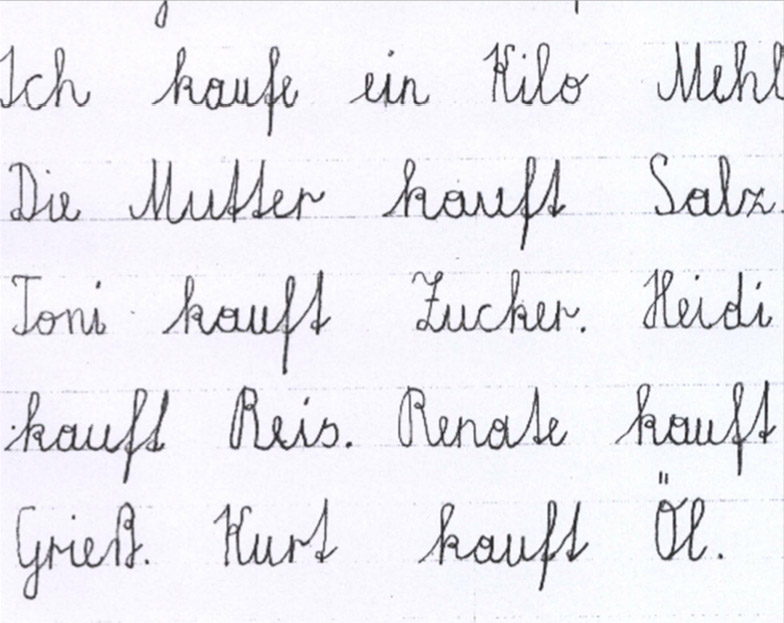 Ich kaufe ein Kilo Mehl
Die Mutter kauft Salz.
Toni kauft Zucker. Heidi
kauft Reis. Renate kauft
Grieß. Kurt kauft Öl.